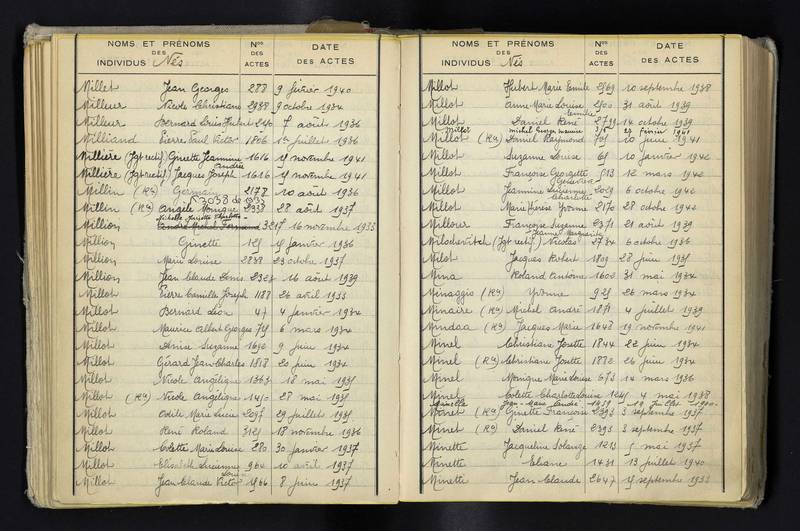 NOMS ET PRÉNOMS
DES
INDIVIDUS Nés
Nos
DES
ACTES
DATE
DES ACTES
Millet Jean Georges 288 9 février 1940
Milleur Nicole Christiane 2938 9 octobre 1934
Milleur Bernard Louis Hubert 7 août 1936
Milliand Pierre Paul Victor 1806 1er juillet 1936
Millière (Jgt rectif.) Ginette Jeannine 1616 novembre 1941
Andrée
Millière (Jgt rectif.) Jacques Joseph 1616 novembre 1941
Millin (Rn) Germain 2178 10 août 1936
Millin (Rn) Angèle Monique 2338 28 août 1937
Michelle Juliette Charlotte
Million 3217 16 novembre 1933
Million Ginette janvier 1936
Million Marie Louise 2838 23 octobre 1937
Million Jean Claude Denis 2323 16 août 1939
Millot Pierre Camille Joseph 1188 26 avril 1933
Millot Bernard Léon 47 4 janvier 1934
Millot Maurice Albert Georges 6 mars 1934
Millot Denise Suzanne 1690 9 juin 1934
Millot Gérard Jean Charles 1818 20 juin 1934
Millot Nicole Angélique 1363 18 mai 1935
Millot (Rn) Nicole Angélique 1450 28 mai 1935
Millot Odile Marie Lucie 2097 29 juillet 1935
Millot René Roland 3121 18 novembre 1936
Millot Colette Marie Louise 280 30 janvier 1937
Millot Elisabeth Suzanne 964 10 avril 1937
Louis
Millot Jean Claude Victor 1566 8 juin 1937
NOMS ET PRÉNOMS
DES
INDIVIDUS Nés
Nos
DES
ACTES
DATE
DES ACTES
Millot Hubert Marie Emile 2569 10 septembre 1938
Millot Anne Marie Louise 2500 31 août 1939
Camille
Millot Daniel René 2799 14 octobre 1939
Millot Michel Georges Maurice 315 27 février 1941
Millot (Rn) Daniel Raymond 705 10 juin 1941
Millot Suzanne Louise 65 10 janvier 1942
Millot Françoise Georgette 513 12 mars 1942
Geneviève
Millot Jeannine Suzanne 2029 6 octobre 1942
Charlotte
Millot Marie Thérèse Yvonne 2170 28 octobre 1942
Millour Françoise Suzanne 2371 21 août 1939
Jeanne Marguerite
Milochevitch (Jgt rectif.) Nicolas 2734 6 octobre 1936
Milot Jacques Robert 1809 28 juin 1935
Mina Roland Antoine 1602 31 mai 1934
Minaggio (Rn) Yvonne 925 26 mars 1934
Minaire (Rn) Michel André 1871 4 juillet 1939
Mindaa (Rn) Jacques Marie 1648 19 novembre 1941
Minel Christiane Josette 1844 22 juin 1934
Minel (Rn) Christiane Josette 1872 26 juin 1934
Minel Monique Marie Louise 673 14 mars 1936
Minel Colette Charlotte Louise 1245 4 mai 1938
Minelle Jean Marie André 1439 19 juillet 1940
Minet (Rn) Ginette Françoise 2393 3 septembre 1937
Minet (Rn) Daniel René 2393 3 septembre 1937
Minette Jacqueline Solange 1213 5 mai 1937
Minette Eliane 1431 13 juillet 1940
Minetti Jean Claude 2647 septembre 1933